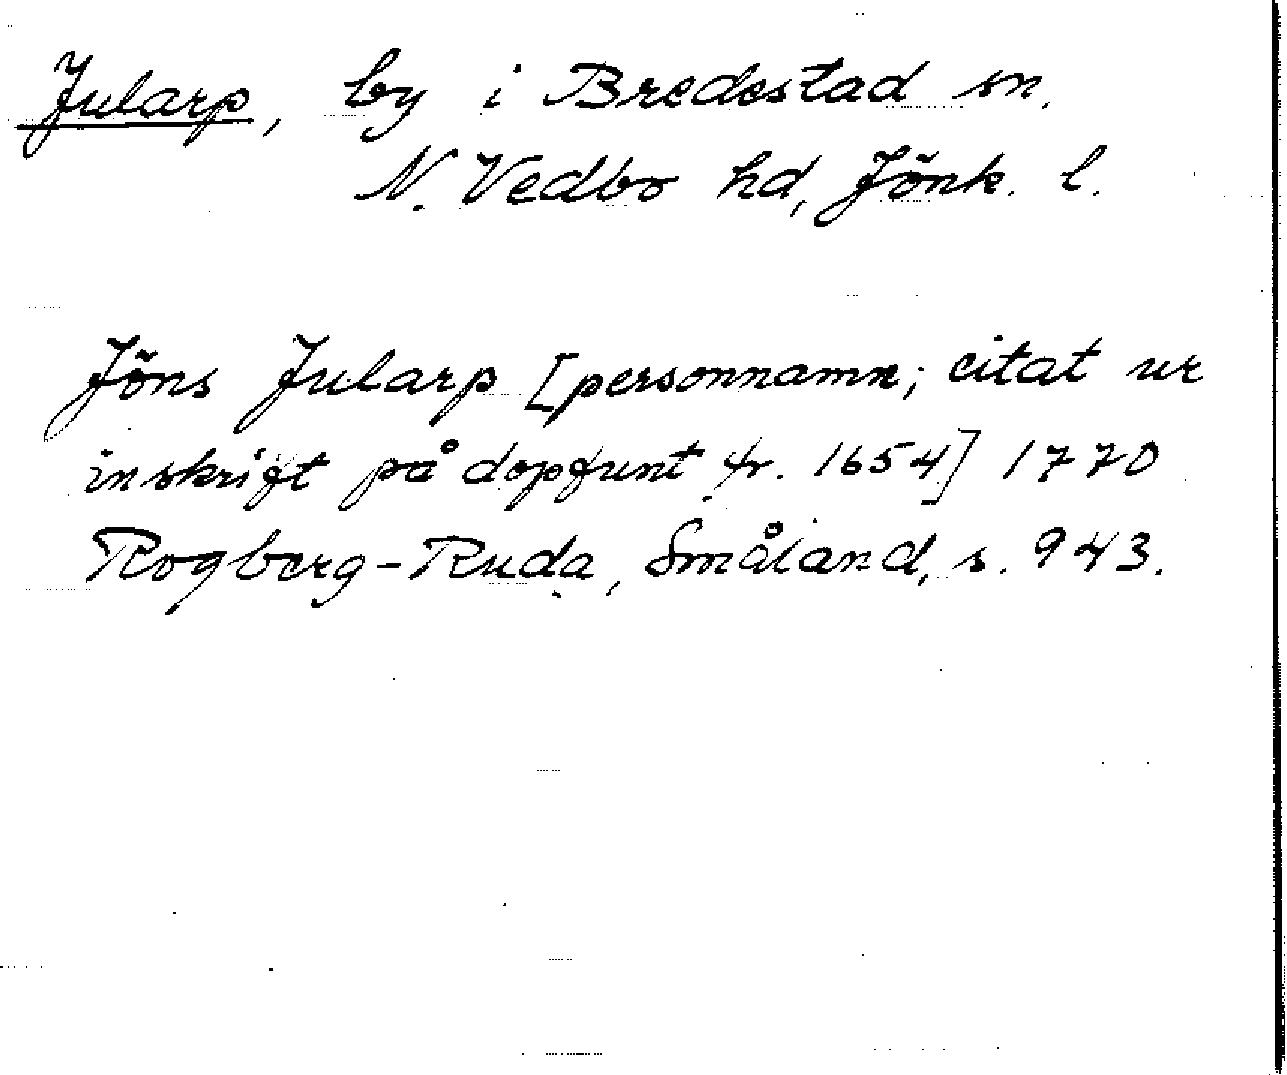 Jularp, by i Bredestad sn.
N. Vedbo hd, Jönk. l.
Jöns Jularp [personnamn; citat ur
inskrift på dopfunt fr. 1654] 1770
Rogberg-Ruda, Småland, s. 943.